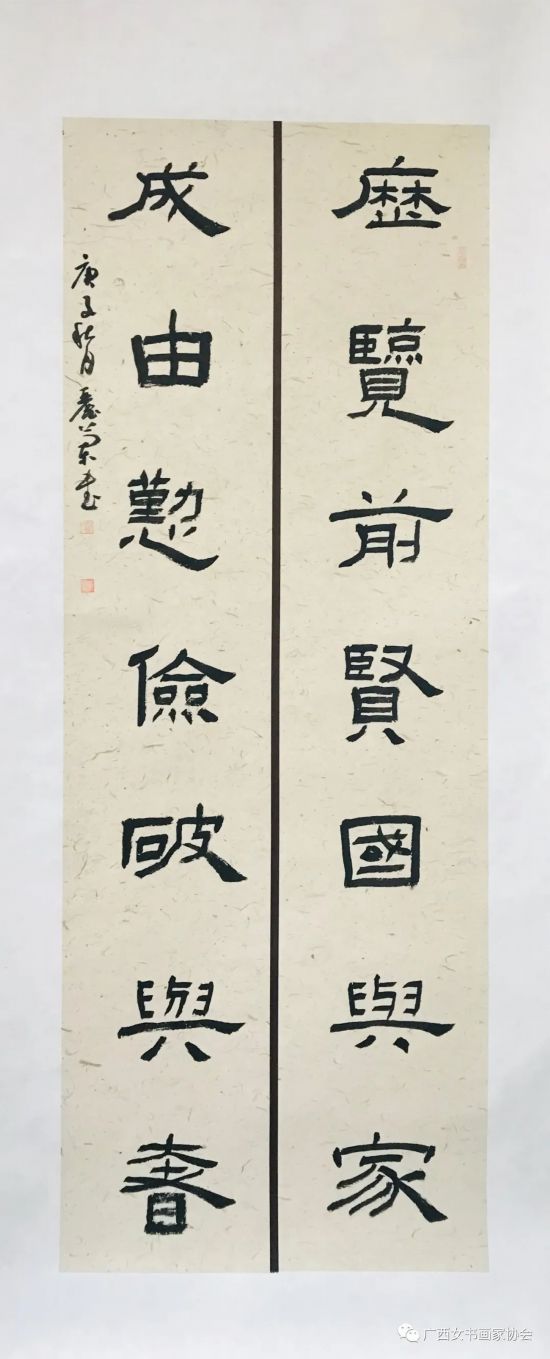 歷覽前賢國與家
成由懃儉破與奢
庚子秋月書
广西女书画家协会